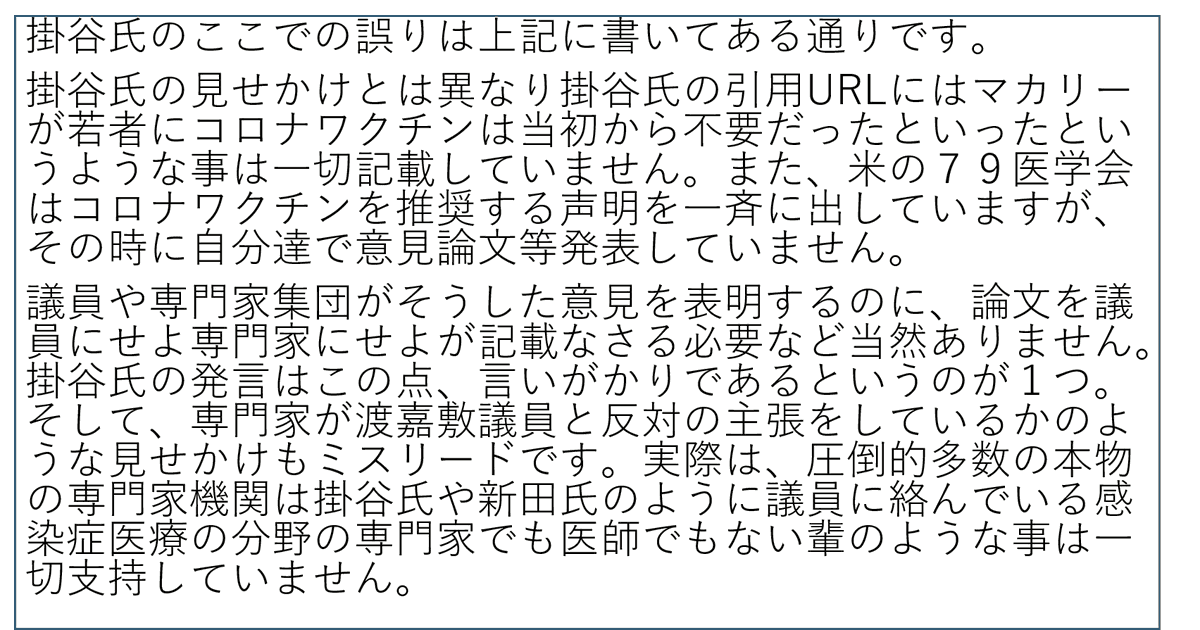 掛谷氏のここでの誤りは上記に書いてある通りです。
掛谷氏の見せかけとは異なり掛谷氏の引用URLにはマカリー
が若者にコロナワクチンは当初から不要だったといったとい
うような事は一切記載していません。また、米の７９医学会
はコロナワクチンを推奨する声明を一斉に出していますが、
その時に自分達で意見論文等発表していません。
議員や専門家集団がそうした意見を表明するのに、論文を議
員にせよ専門家にせよが記載なさる必要など当然ありません。
掛谷氏の発言はこの点、言いがかりであるというのが１つ。
そして、専門家が渡嘉敷議員と反対の主張をしているかのよ
うな見せかけもミスリードです。実際は、圧倒的多数の本物
の専門家機関は掛谷氏や新田氏のように議員に絡んでいる感
染症医療の分野の専門家でも医師でもない輩のような事は一
切支持していません。